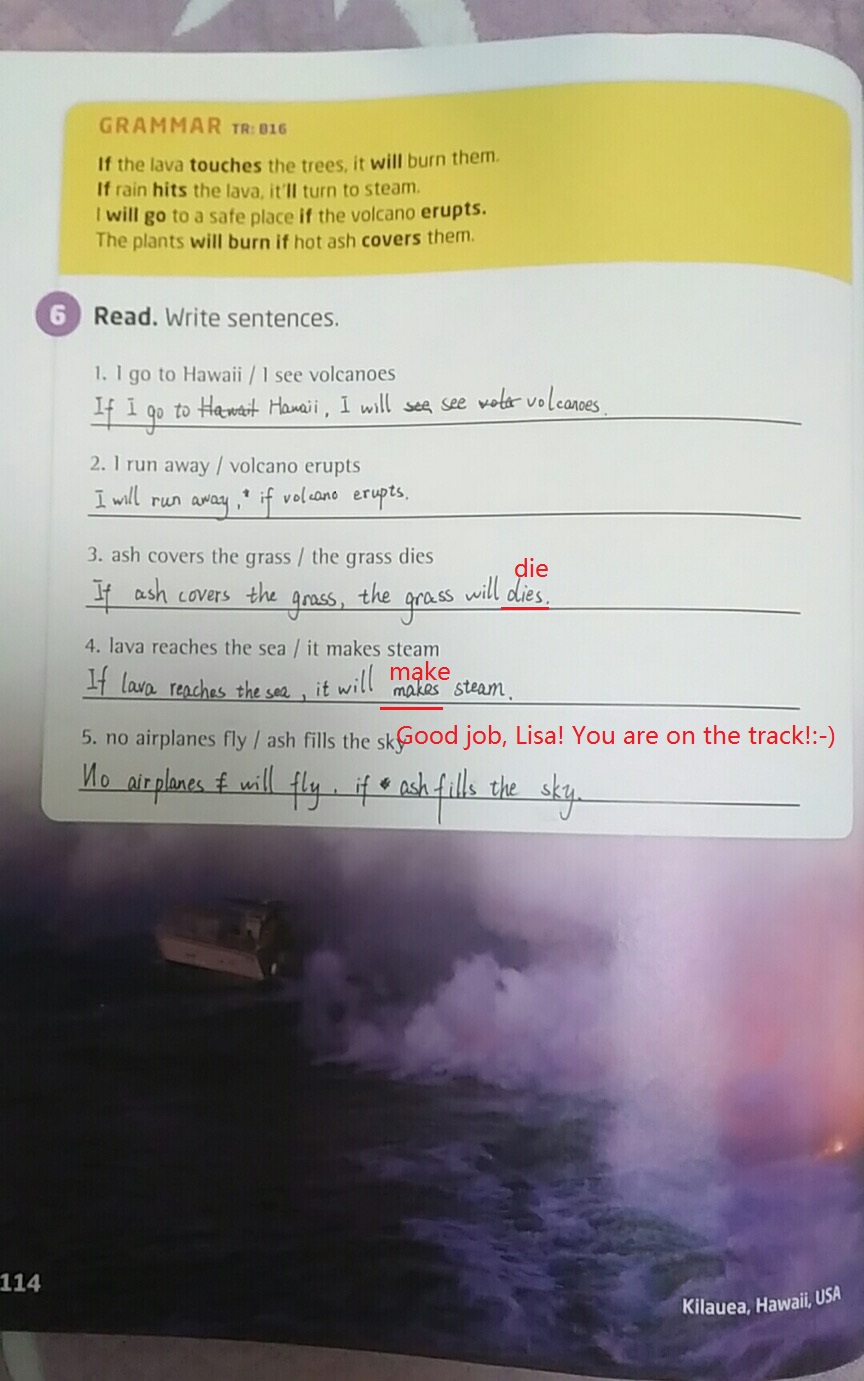 GRAMMAR TR: B16
If the lava touches the trees, it will burn them.
If rain hits the lava, it'll turn to steam.
I will go to a safe place if the volcano erupts.
The plants will burn if hot ash covers them.
6 Read. Write sentences.
1. I go to Hawaii / I see volcanoes
If I go to Hawaii, I will see volcanoes.
2. I run away / volcano erupts
I will run away, if volcano erupts.
3. ash covers the grass / the grass dies
die
If ash covers the grass, the grass will dies.
4. lava reaches the sea / it makes steam
make
If lava reaches the sea, it will makes steam.
5. no airplanes fly / ash fills the sky
Good job, Lisa! You are on the track!:-)
No airplanes will fly, if ash fills the sky.
114
Kilauea, Hawaii, USA